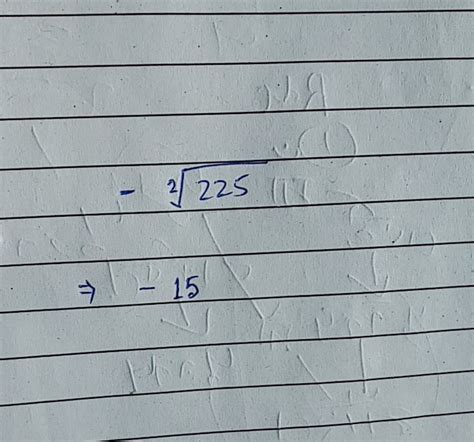 - ²√225
⇒ - 15